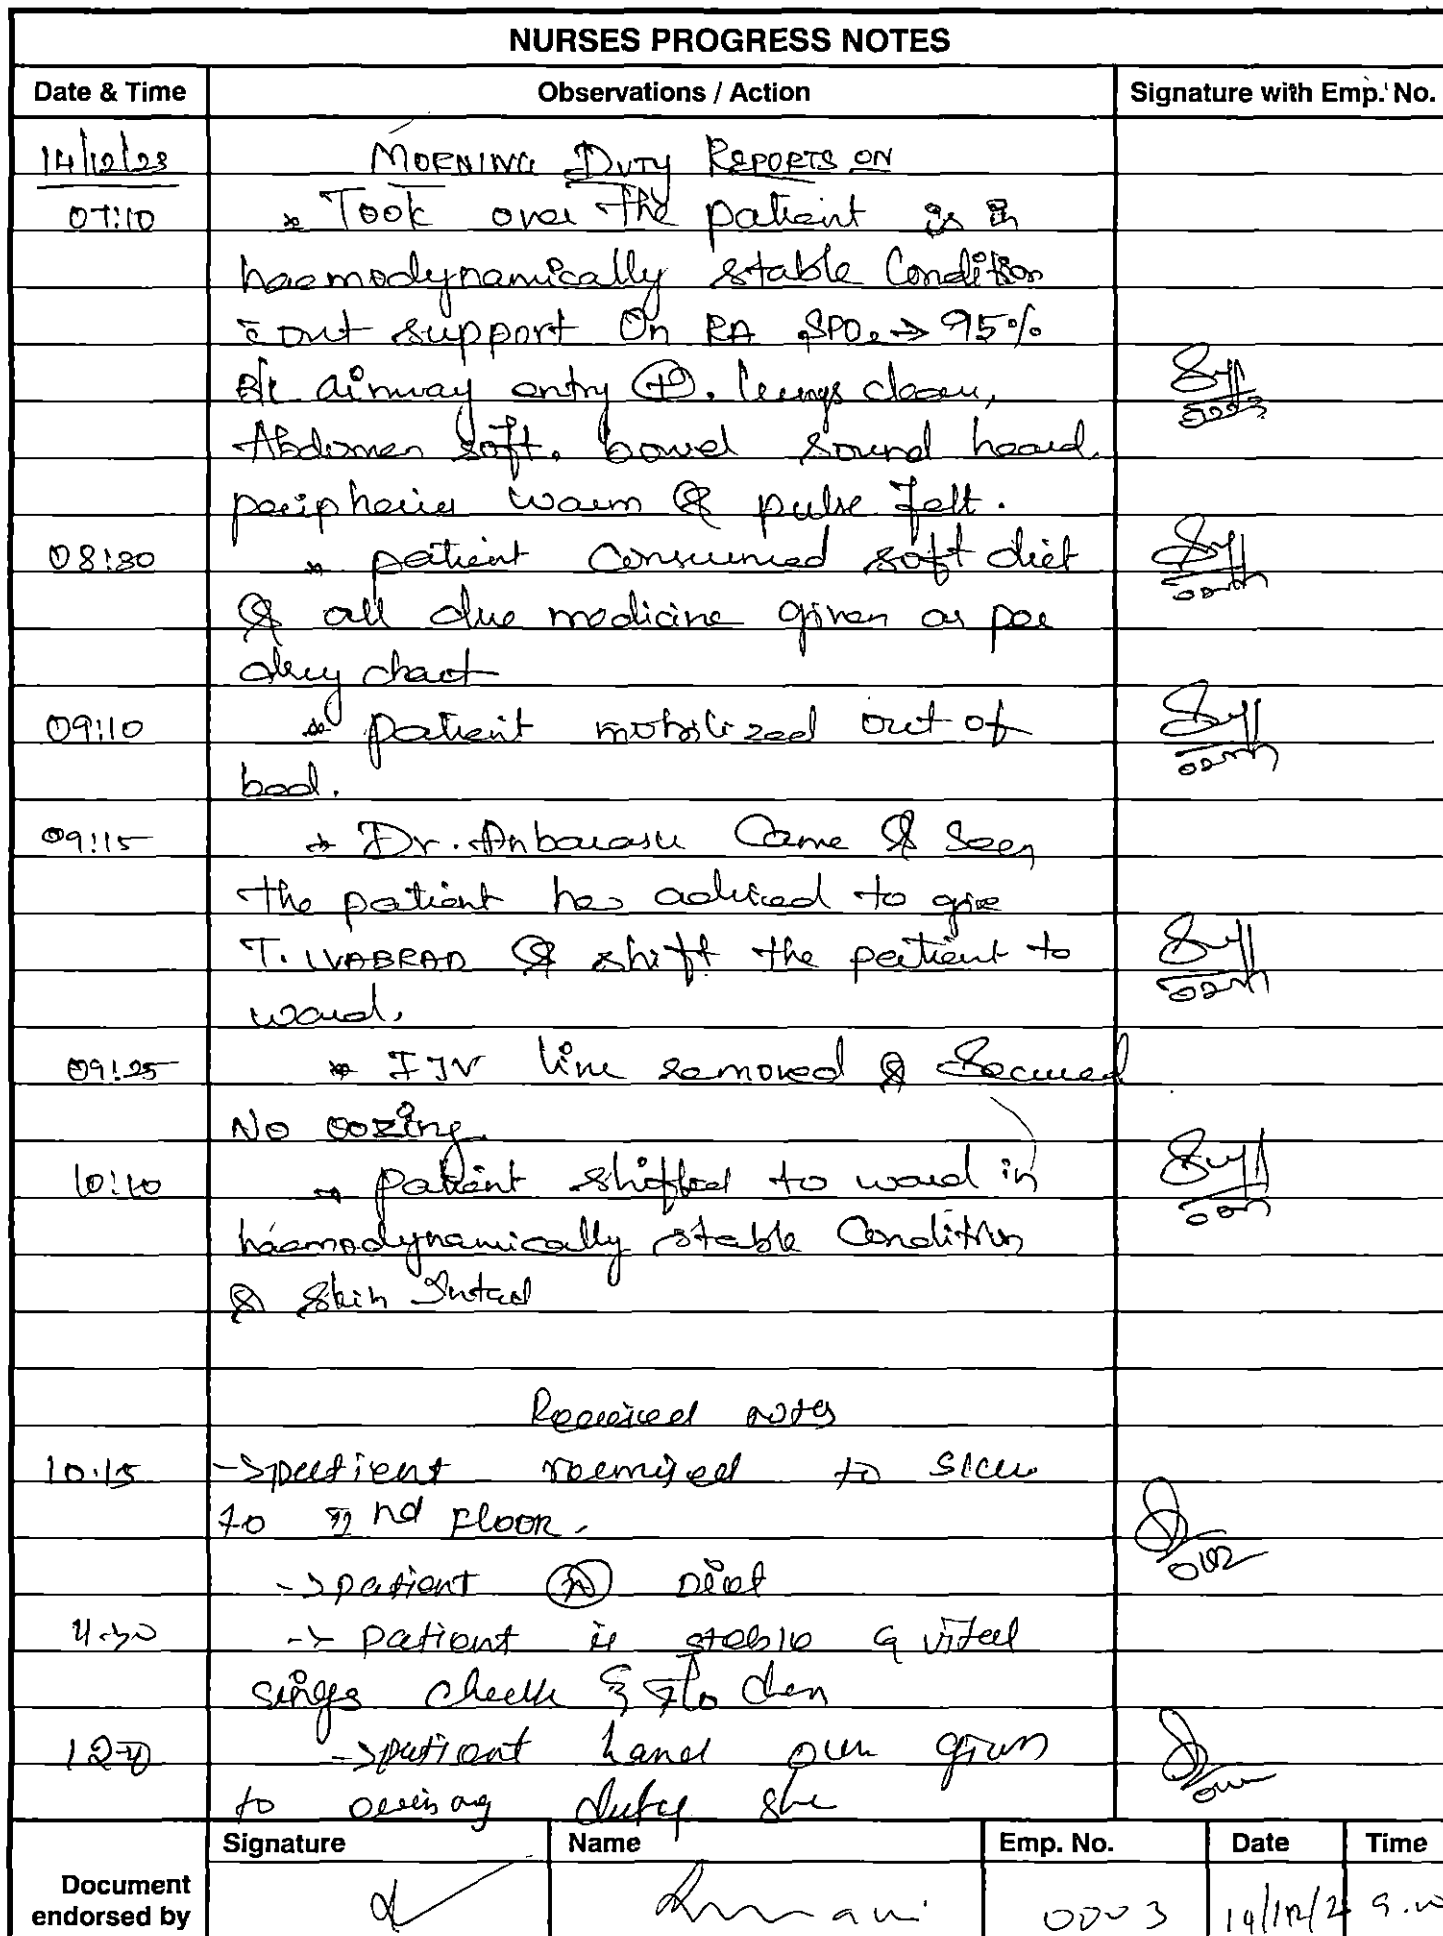 NURSES PROGRESS NOTES
Date & Time Observations / Action Signature with Emp. No.
14/12/23 MORNING DUTY REPORTS ON
07:10 * Took over the patient is in
haemodynamically stable Condition
c̄ out support On RA SPO2 → 95%
B/L airway entry ⊕. lungs clear,
Abdomen soft. bowel sound heard.
peripheries warm & pulse felt.
08:30 * patient Consumed soft diet
& all due medicine given as per
drug chart
09:10 * patient mobilized out of
bed.
09:15 * Dr. Anbarasu Came & Seen
the patient has adviced to give
T. IVABRAD & shift the patient to
ward.
09:25 * IJV line removed & Secured
No oozing.
10:10 * patient shifted to ward in
haemodynamically stable Condition
& Skin Intact
Received notes
10.15 -> patient to SICU
to nd FLOOR.
-> patient Diet
-> patient is stable vital
sings check
-> patient hand over given
to duty
Document endorsed by
Signature Name Emp. No. Date Time
0003